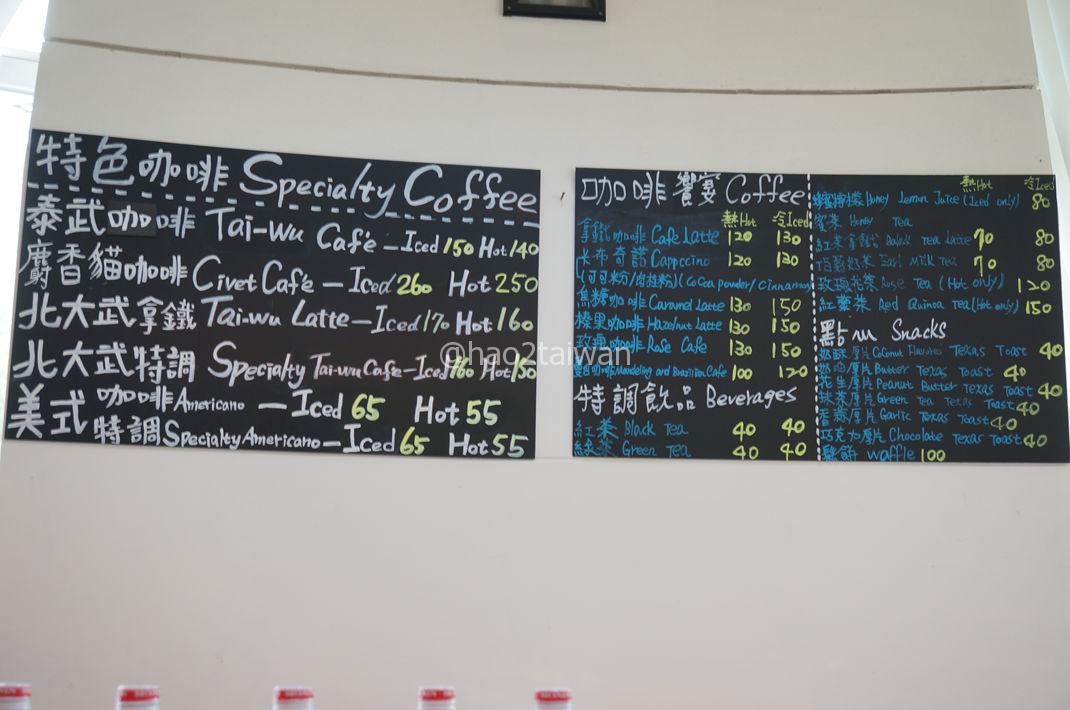 特色咖啡 Specialty Coffee
泰武咖啡 Tai-wu Café – Iced 150 Hot 140
麝香貓咖啡 Civet Café – Iced 260 Hot 250
北大武拿鐵 Tai-wu Latte – Iced 170 Hot 160
北大武特調 Specialty Tai-wu Cafe – Iced 160 Hot 150
美式 咖啡 Americano – Iced 65 Hot 55
特調 Specialty Americano – Iced 65 Hot 55
咖啡饗宴 Coffee
熱Hot 冷Iced
拿鐵咖啡 Cafe Latte 120 130
卡布奇諾 Cappccino 120 130
(可可粉/肉桂粉) (Cocoa powder/Cinnamon)
焦糖咖啡 Caramel Latte 130 150
榛果咖啡 Hazelnut Latte 130 150
玫瑰咖啡 Rose Cafe 130 150
咖啡 Mandeling and Brazilian Cafe 100 120
特調飲品 Beverages
紅茶 Black Tea 40 40
綠茶 Green Tea 40 40
熱Hot 冷Iced
蜂蜜檸檬 Honey Lemon Juice (Iced only) 80
蜜茶 Honey Tea
紅茶拿鐵 Black Tea Latte 70 80
伯爵奶茶 Earl Milk Tea 70 80
玫瑰花茶 Rose Tea (Hot only) 120
紅藜茶 Red Quinoa Tea (Hot only) 150
點心 Snacks
奶酥厚片 Coconut Flavored Texas Toast 40
奶油厚片 Butter Texas Toast 40
花生厚片 Peanut Butter Texas Toast 40
抹茶厚片 Green Tea Texas Toast 40
香蒜厚片 Garlic Texas Toast 40
巧克力厚片 Chocolate Texas Toast 40
鬆餅 waffle 100
@hao2taiwan